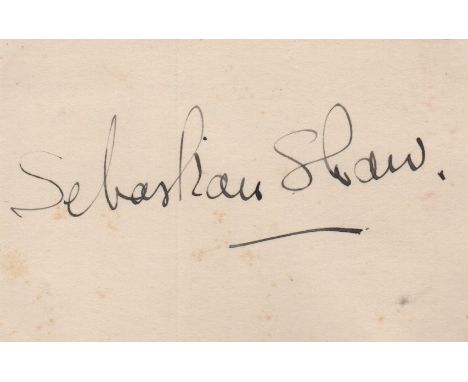 Sebastian Shaw.